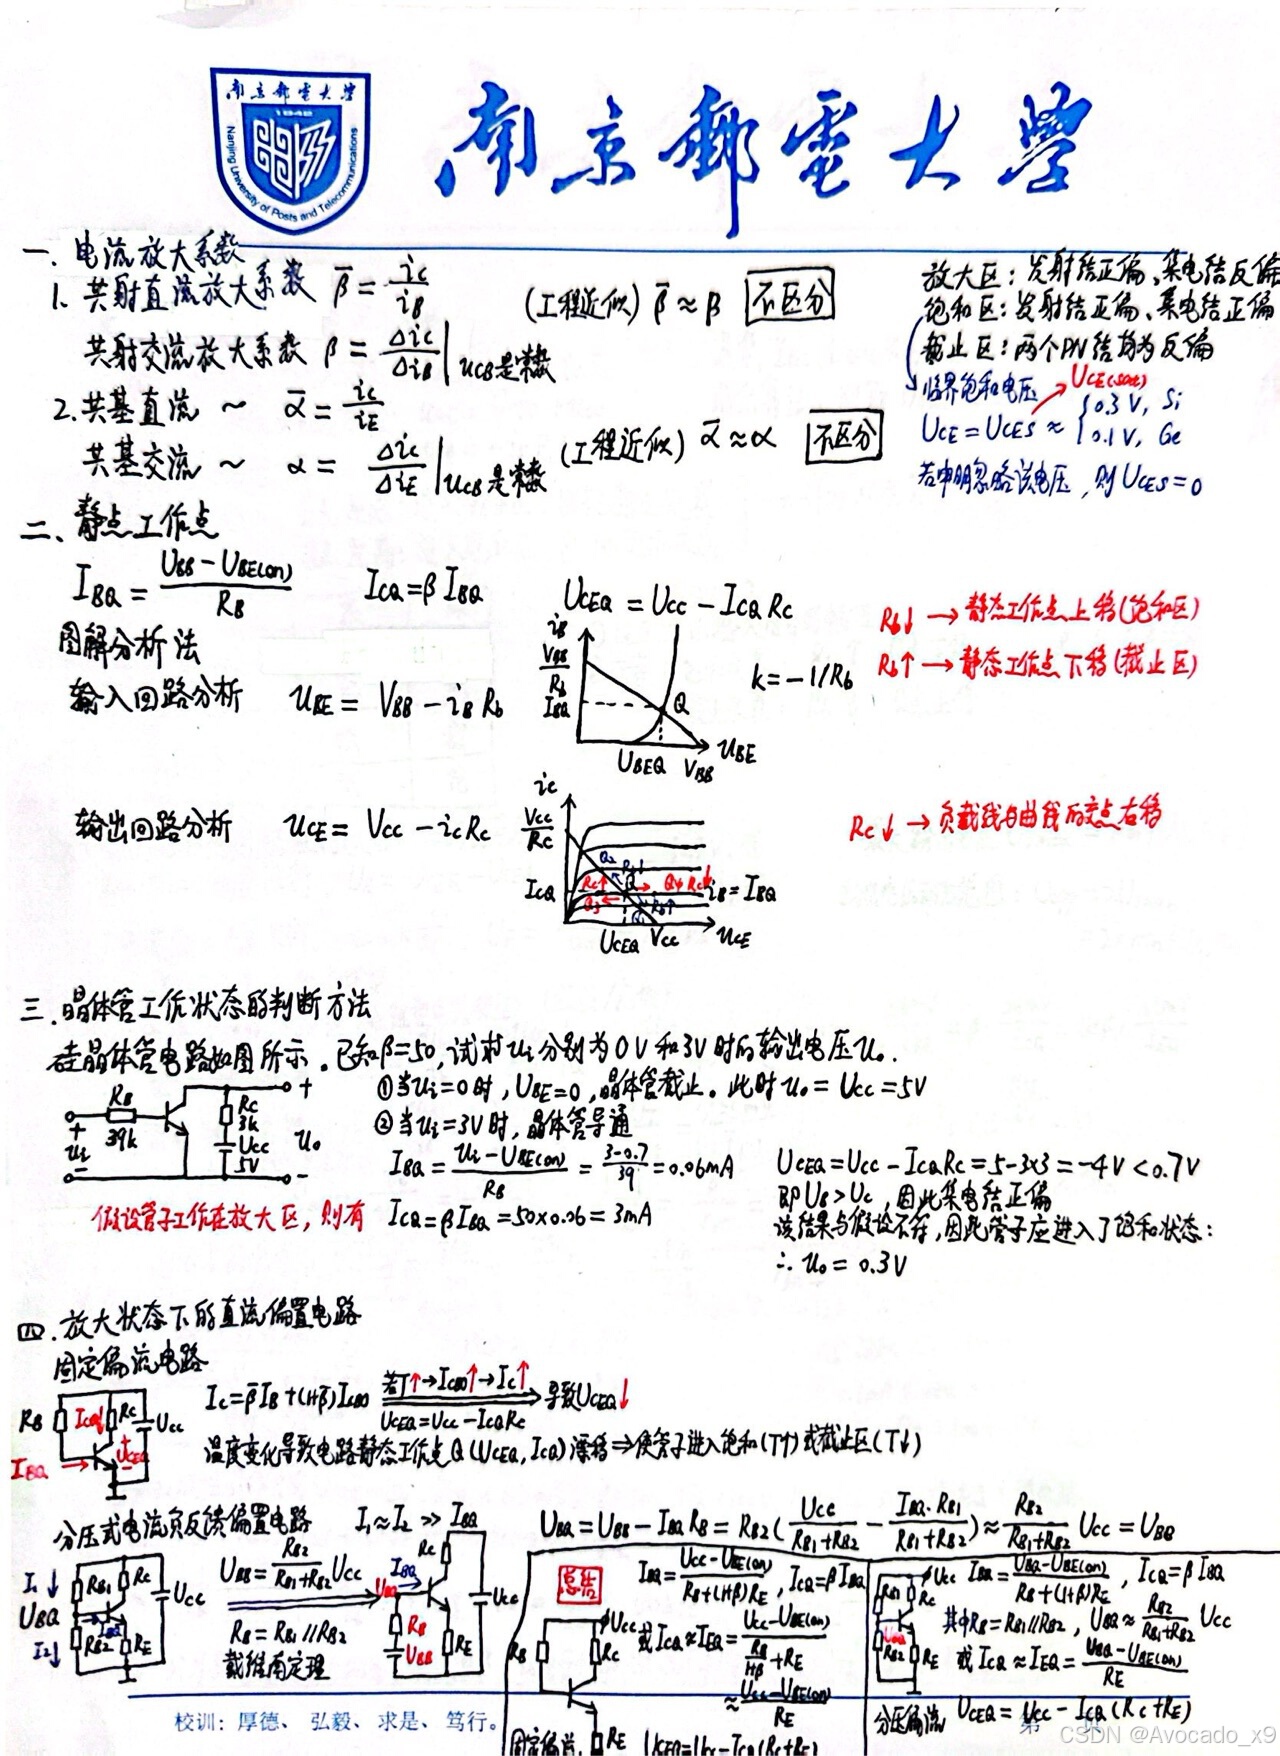 南京邮电大学
1942
Nanjing University of Posts and Telecommunications
南京郵電大學
一. 电流放大系数
1. 共射直流放大系数 β̄ = iC/iB (工程近似) β̄≈β 不区分
共射交流放大系数 β = ΔiC/ΔiB | uCB是常数
2. 共基直流 ~ ᾱ = iC/iE
共基交流 ~ α = ΔiC/ΔiE | uCB是常数 (工程近似) ᾱ≈α 不区分
放大区：发射结正偏、集电结反偏
饱和区：发射结正偏、集电结正偏
截止区：两个PN结均为反偏
临界饱和电压 UCE(sat)
UCE = UCES ≈ { 0.3V, Si
0.1V, Ge
若申明忽略该电压，则UCES=0
二、静点工作点
IBQ = (UBB - UBE(on))/RB ICQ=βIBQ UCEQ = UCC - ICQ RC
图解分析法
输入回路分析 uBE = VBB - iB Rb
iB
VBB/Rb
IBQ
Q
UBEQ VBB uBE
k=-1/Rb
Rb↓ → 静态工作点上移(饱和区)
Rb↑ → 静态工作点下移(截止区)
输出回路分析 uCE = VCC - iC RC
iC
VCC/RC
ICQ
Q2 Rb↓
RC↑ Q Q4 RC↓ iB=IBQ
Q3 Rb↑
Q1
UCEQ VCC uCE
RC↓ → 负载线与曲线的交点右移
三. 晶体管工作状态的判断方法
硅晶体管电路如图所示。已知β=50,试求ui分别为0V和3V时的输出电压uo.
RB
39k
+
ui
-
RC
3k
UCC
5V
+
uo
-
①当ui=0时,UBE=0,晶体管截止。此时uo=UCC=5V
②当ui=3V时,晶体管导通
IBQ = (ui - UBE(on))/RB = (3-0.7)/39 = 0.06mA
假设管子工作在放大区，则有 ICQ=βIBQ=50×0.06=3mA
UCEQ=UCC-ICQRC=5-3×3=-4V<0.7V
即UB>UC，因此集电结正偏
该结果与假设不符,因此管子应进入了饱和状态:
∴uo=0.3V
四. 放大状态下的直流偏置电路
固定偏流电路
RB ICQ RC UCC
IBQ
+
UCEQ
-
IC=β̄IB+(1+β̄)ICBO 若T↑→ICBO↑→IC↑ 导致UCEQ↓
UCEQ=UCC-ICQRC
温度变化导致电路静态工作点Q(UCEQ,ICQ)漂移⇒使管子进入饱和(T↑)或截止区(T↓)
分压式电流负反馈偏置电路 I1≈I2 >> IBQ
I1↓ RB1 RC UCC
UBQ IBQ
I2↓ RB2 RE
UBB = RB2/(RB1+RB2) UCC
RB=RB1//RB2
戴维南定理
IBQ RC
UBQ
RB UCC
UBB RE
UBQ=UBB-IBQRB=RB2(UCC/(RB1+RB2) - IBQ·RB1/(RB1+RB2)) ≈ RB2/(RB1+RB2) UCC=UBB
总结
IBQ=(UCC-UBE(on))/(RB+(1+β)RE) , ICQ=βIBQ
或ICQ≈IEQ=(UCC-UBE(on))/(RB/(1+β)+RE)
≈(UCC-UBE(on))/RE
UCC
RB RC
RE
固定偏流
UCEQ=UCC-ICQ(RC+RE)
UCC
RB1 RC
UBQ
RB2 RE
IBQ=(UBQ-UBE(on))/(RB+(1+β)RE) , ICQ=βIBQ
其中RB=RB1//RB2 , UBQ≈RB2/(RB1+RB2) UCC
或ICQ≈IEQ=(UBQ-UBE(on))/RE
分压偏流 UCEQ=UCC-ICQ(RC+RE)
校训：厚德、弘毅、求是、笃行。
第
CSDN @Avocado_x9